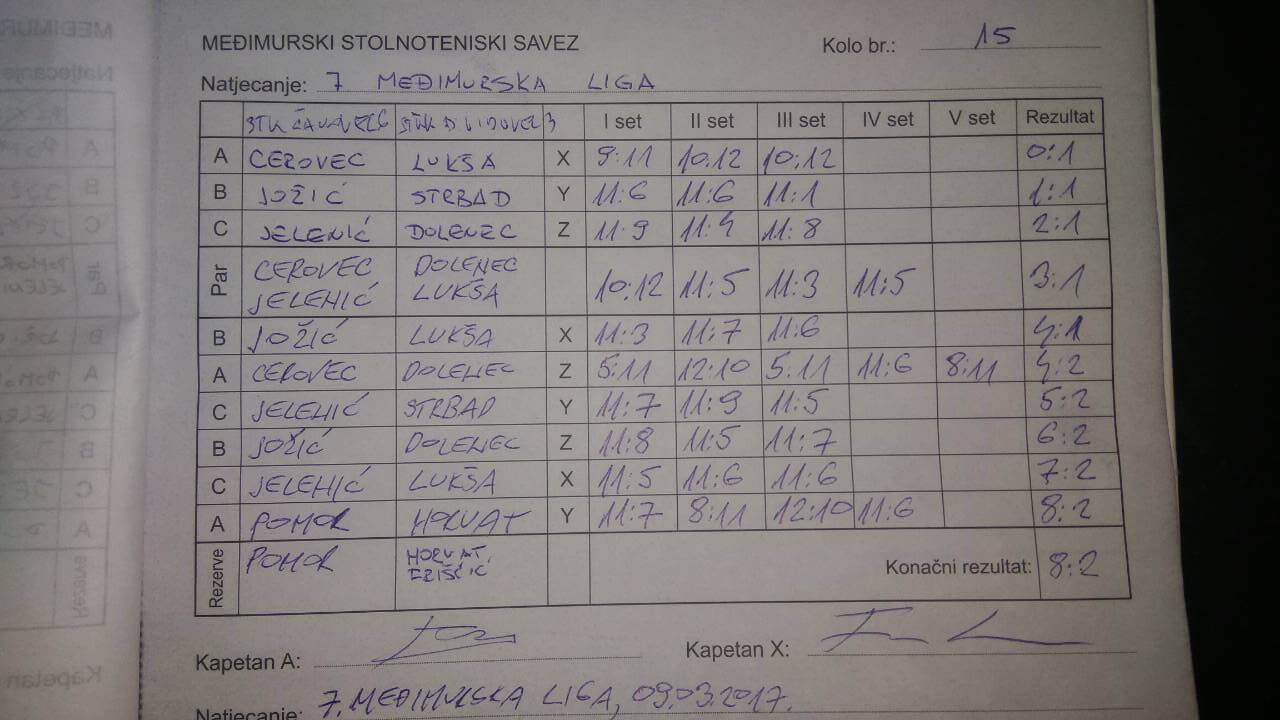 MEĐIMURSKI STOLNOTENISKI SAVEZ Kolo br.: 15
Natjecanje: 7 MEĐIMURSKA LIGA
STK I set II set III set IV set V set Rezultat
A CEROVEC LUKŠA X 9:11 10:12 10:12 0:1
B JOŽIĆ STRBAD Y 11:6 11:6 11:1 1:1
C JELENIĆ DOLENEC Z 11:9 11:4 11:8 2:1
Par CEROVEC DOLENEC
JELENIĆ LUKŠA 10:12 11:5 11:3 11:5 3:1
B JOŽIĆ LUKŠA X 11:3 11:7 11:6 4:1
A CEROVEC DOLENEC Z 5:11 12:10 5:11 11:6 8:11 4:2
C JELENIĆ STRBAD Y 11:7 11:9 11:5 5:2
B JOŽIĆ DOLENEC Z 11:8 11:5 11:7 6:2
C JELENIĆ LUKŠA X 11:5 11:6 11:6 7:2
A POMOR HORVAT Y 11:7 8:11 12:10 11:6 8:2
Rezerve POMOR HORVAT, Konačni rezultat: 8:2
Kapetan A: Kapetan X:
Natjecanje: 7. MEĐIMURSKA LIGA, 09.03.2017.